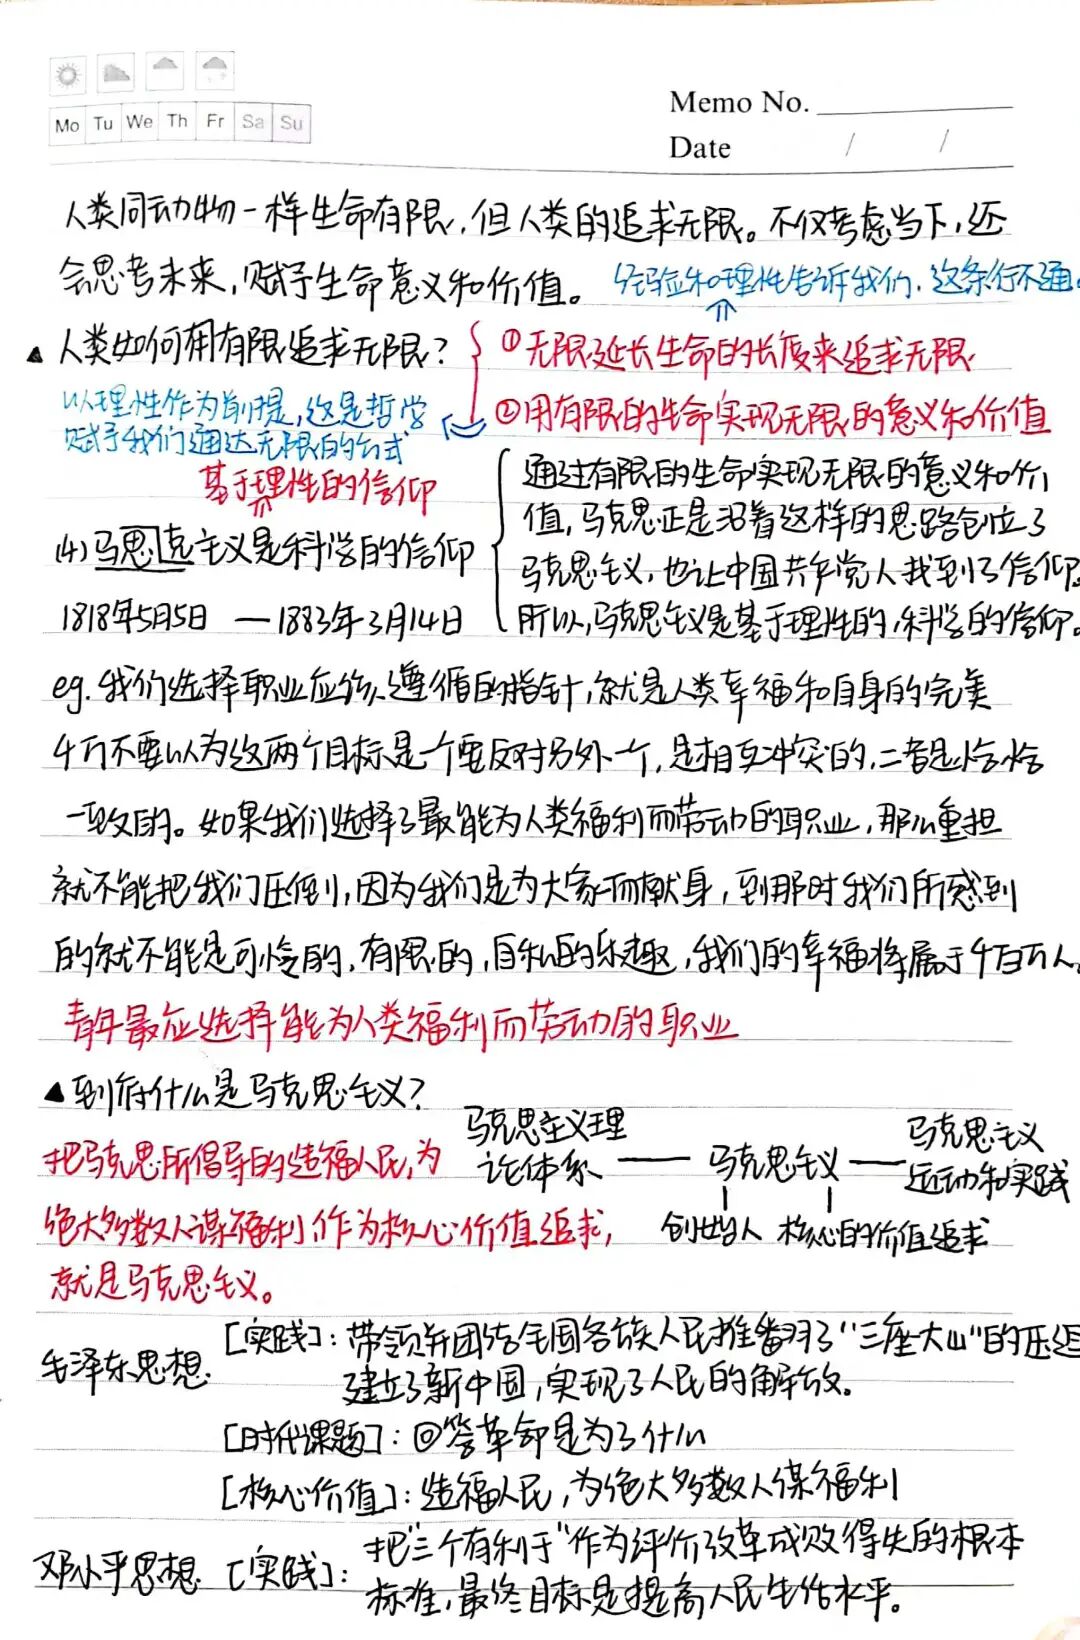 Memo No.
Mo Tu We Th Fr Sa Su
Date / /
人类同动物一样生命有限,但人类的追求无限。不仅考虑当下,还
会思考未来,赋予生命意义和价值。 经验和理性告诉我们,这条行不通。
▲人类如何用有限追求无限? ①无限延长生命的长度来追求无限
②用有限的生命实现无限的意义和价值
以理性作为前提,这是哲学
赋予我们通达无限的公式
基于理性的信仰
(4)马思克主义是科学的信仰
1818年5月5日 —1883年3月14日
通过有限的生命实现无限的意义和价
值,马克思正是沿着这样的思路创立了
马克思主义,也让中国共产党人找到了信仰。
所以,马克思主义是基于理性的,科学的信仰。
eg.我们选择职业应该遵循的指针,就是人类幸福和自身的完美
千万不要以为这两个目标是一个要反对另外一个,是相互冲突的,二者是恰恰
一致的。如果我们选择了最能为人类福利而劳动的职业,那么重担
就不能把我们压倒,因为我们是为大家而献身,到那时我们所感到
的就不能是可怜的,有限的,自私的乐趣,我们的幸福将属于千百万人。
青年最应选择能为人类福利而劳动的职业
▲到底什么是马克思主义?
把马克思所倡导的造福人民,为
绝大多数人谋福利作为核心价值追求,
就是马克思主义。
马克思主义理
论体系 —— 马克思主义 —— 马克思主义
运动和实践
创始人 核心的价值追求
毛泽东思想 [实践]:带领并团结全国各族人民推翻了“三座大山”的压迫
建立了新中国,实现了人民的解放。
[时代课题]:回答革命是为了什么
[核心价值]:造福人民,为绝大多数人谋福利
邓小平思想 [实践]:把“三个有利于”作为评价改革成败得失的根本
标准,最终目标是提高人民生活水平。